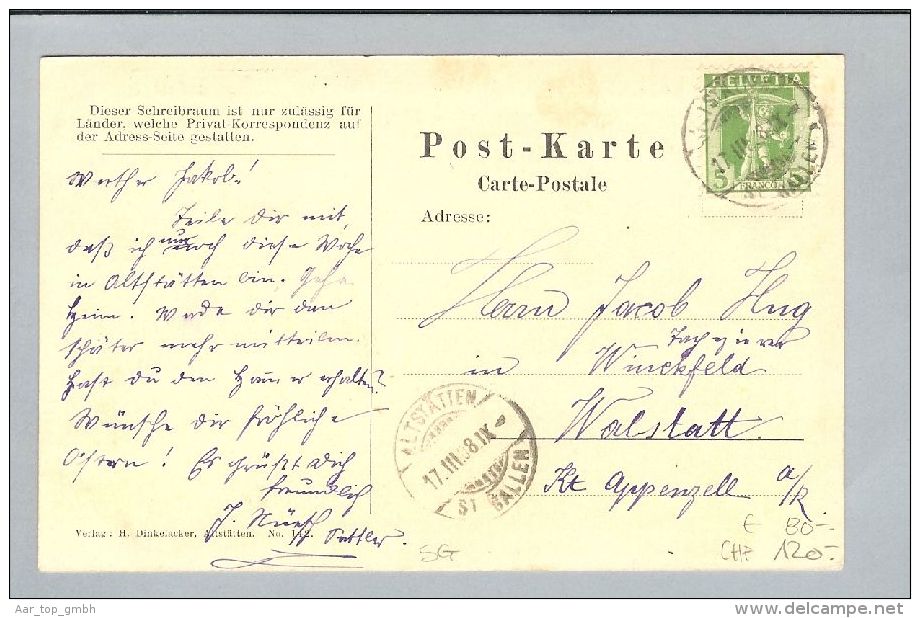 Dieser Schreibraum ist nur zulässig für
Länder, welche Privat-Korrespondenz auf
der Adress-Seite gestatten.
Post-Karte
Carte-Postale
Adresse:
HELVETIA
5
FRANCO
ST GALLEN
Werther Jakob!
Teile Dir mit,
daß ich nur noch diese Woche
in Altstätten bin. Gehe
Heim. Werde dir dan
später mehr mitteilen.
Hast du den Hauer erhalten?
Wünsche dir fröhliche
Ostern! Es grüßt Dich
freundlich
J. Nüesch
Sattler.
Herrn Jacob Hug
in Winckfeld
Walstatt.
Kt Appenzell a/R
ALTSTÄTTEN
17.III.8.IX
ST GALLEN
Verlag: H. Dinkelacker, Altstätten. No. 142.
SG
€ 80.-
CHF 120.-
Aar_top_gmbh
www.delcampe.net